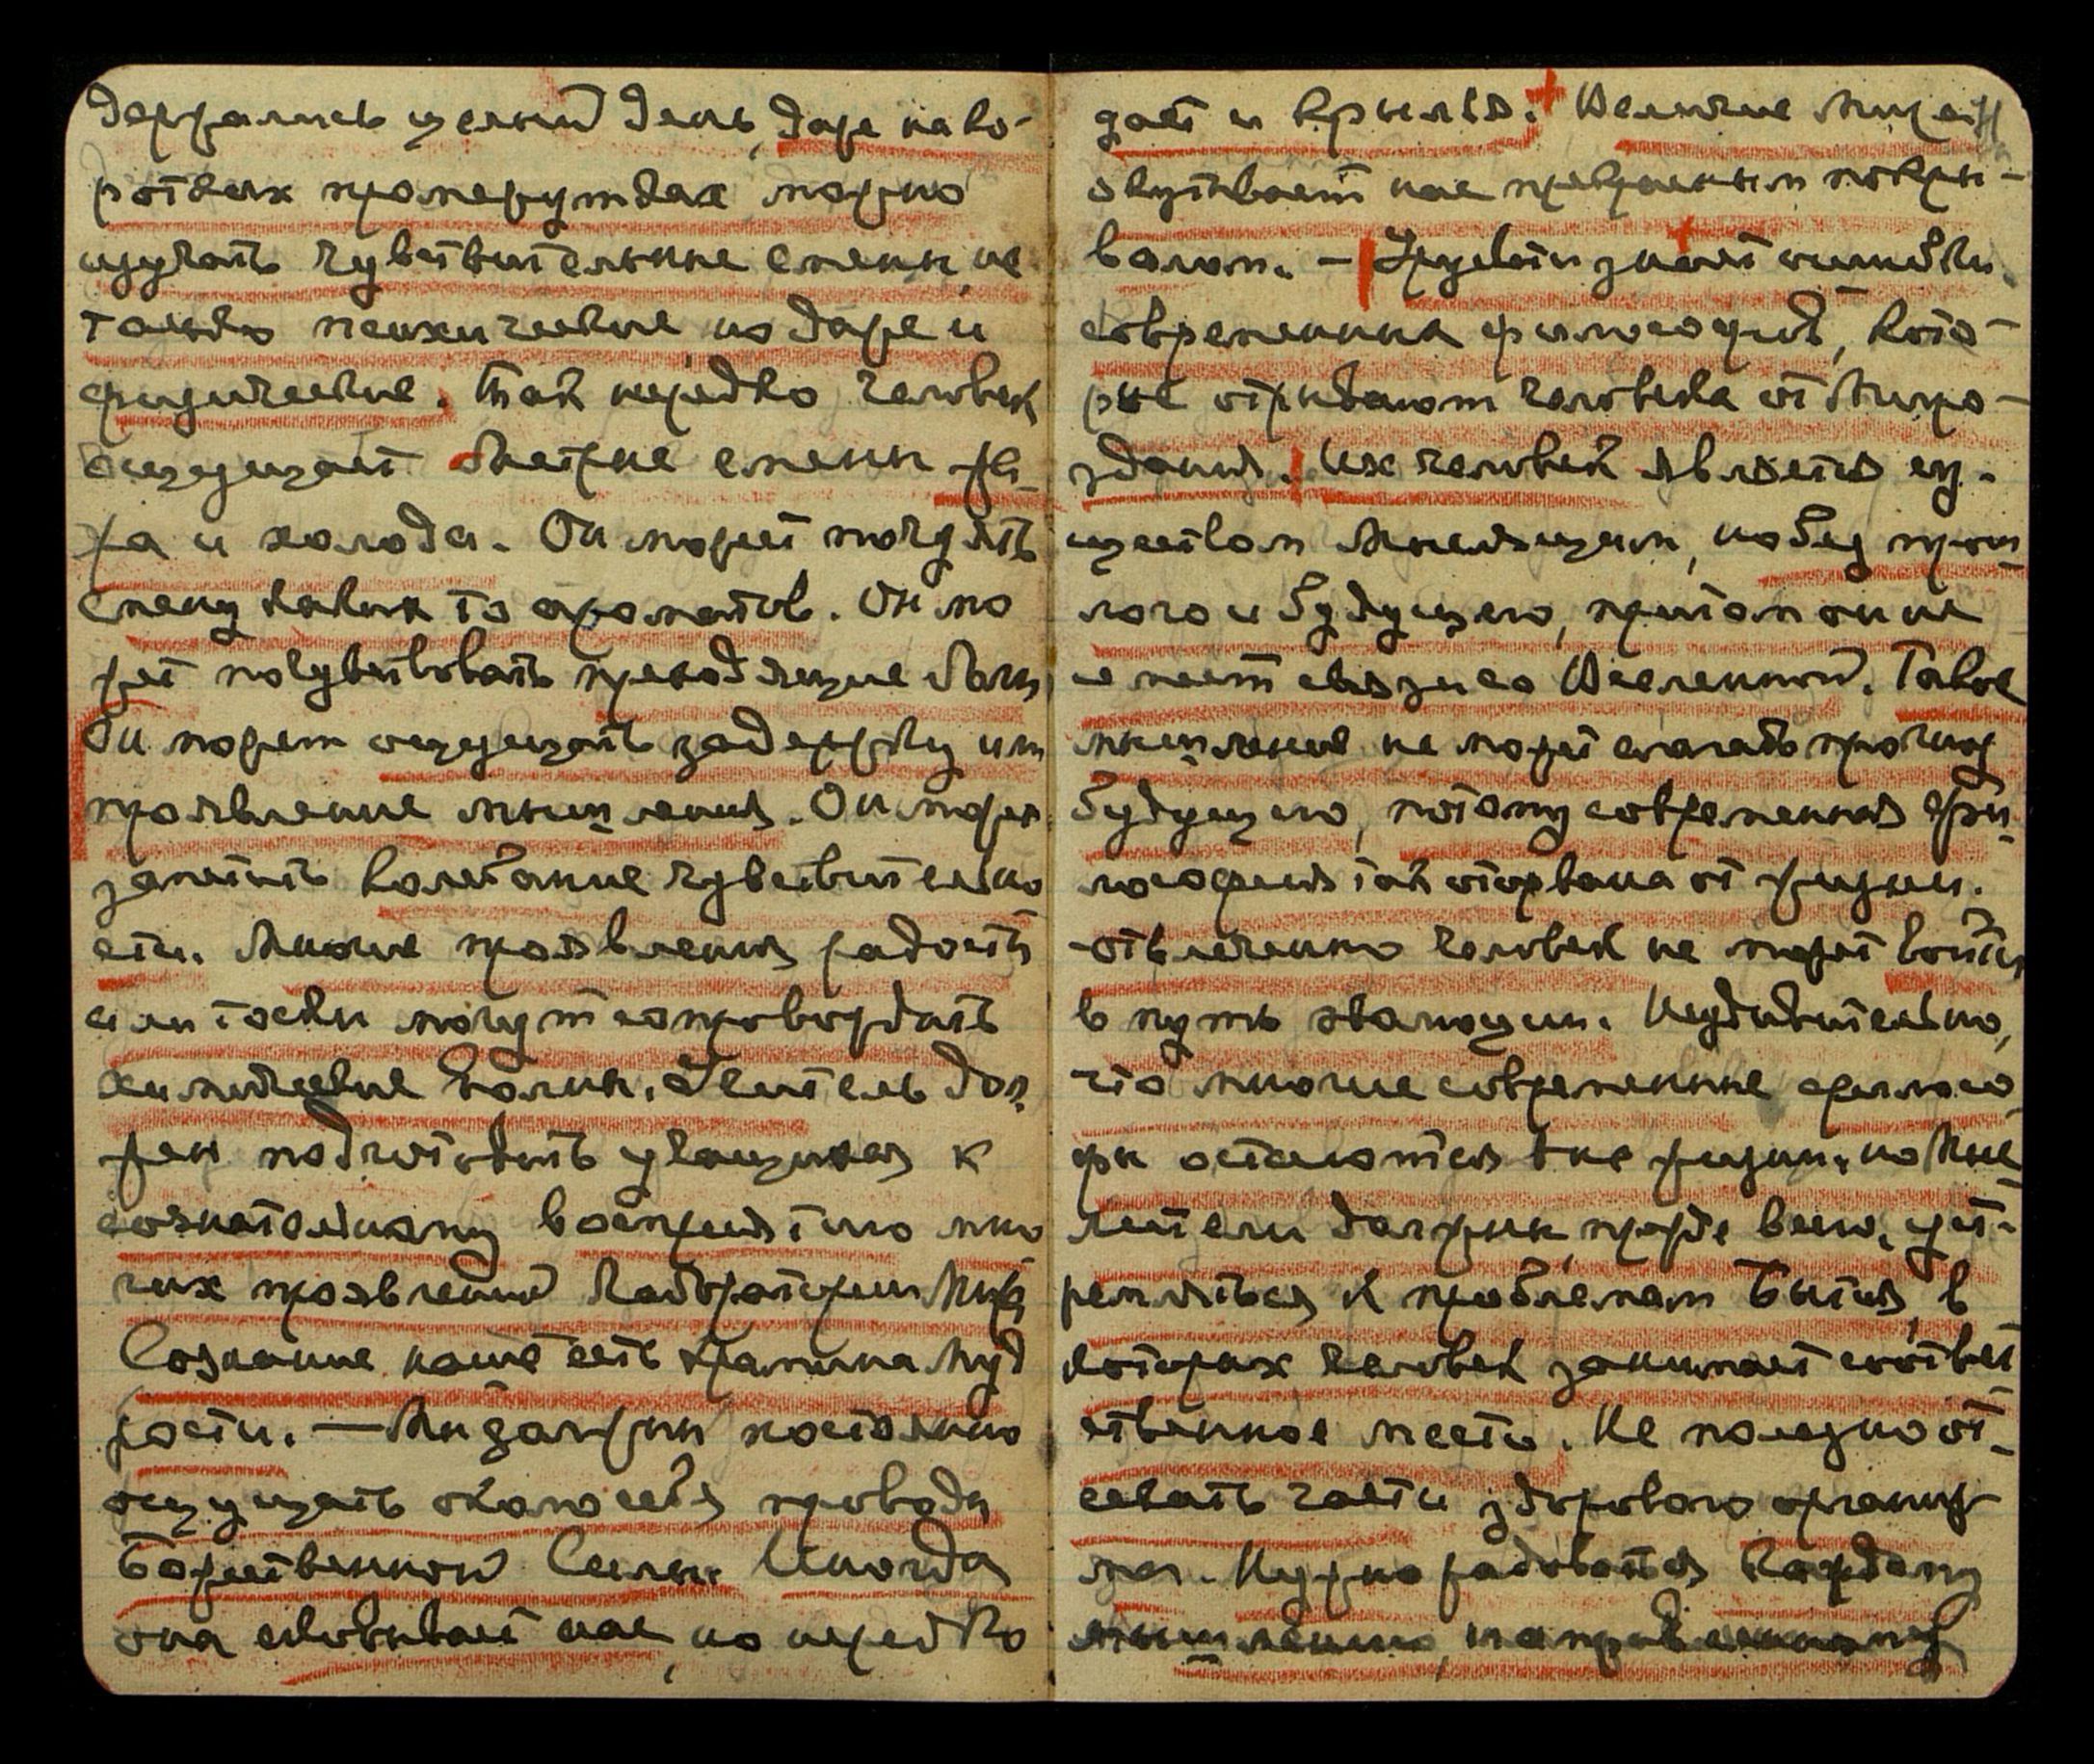 держались целый день, даже на ко-
ротких промежутках можно
изучать чувствительные смены, не
только психические, но даже и
физические. Так нередко человек
ощущает быстрые смены жа-
ра и холода. Он может почуять
смену каких то ароматов. Он мо
жет почувствовать преходящие боли
Он может ощущать задержку или
проявление мышления. Он может
заметить колебание чувствительно
сти. Многие проявления радости
или тоски могут сопровождать
химические волны. Учитель дол
жен подготовить учащихся к
сознательному восприятию мно
гих проявлений Лаборатории Мира
Сознание наше есть крапина Муд
рости. — Мы должны постоянно
ощущать около себя провода
Божественной Силы. Иногда
она сковывает нас, но нередко
дает и крылья. Величие Мирасн
окутывает нас прекрасным покры-
валом. — Урусвати знает ошибки
современных философов, кото-
рые отрывают человека от Миро-
здания. Их человек является су-
ществом мыслящим, но без прош
лого и будущего, притом он не
имеет связи со Вселенной. Такое
мышление не может слагать прочное
будущего, потому современная фи
лософия так оторвана от жизни.
-отвлеченно человек не может войти
в путь эволюции. Неудивительно,
что многие современные филосо
фы остаются вне жизни, но Мыс
лители должны, прежде всего, уст-
ремляться к проблемам Бытия, в
которых человек занимает соответ
ственное место. Не полезно от-
секать части здорового организ
ма. Нужно радоваться каждому
мышлению, направленному